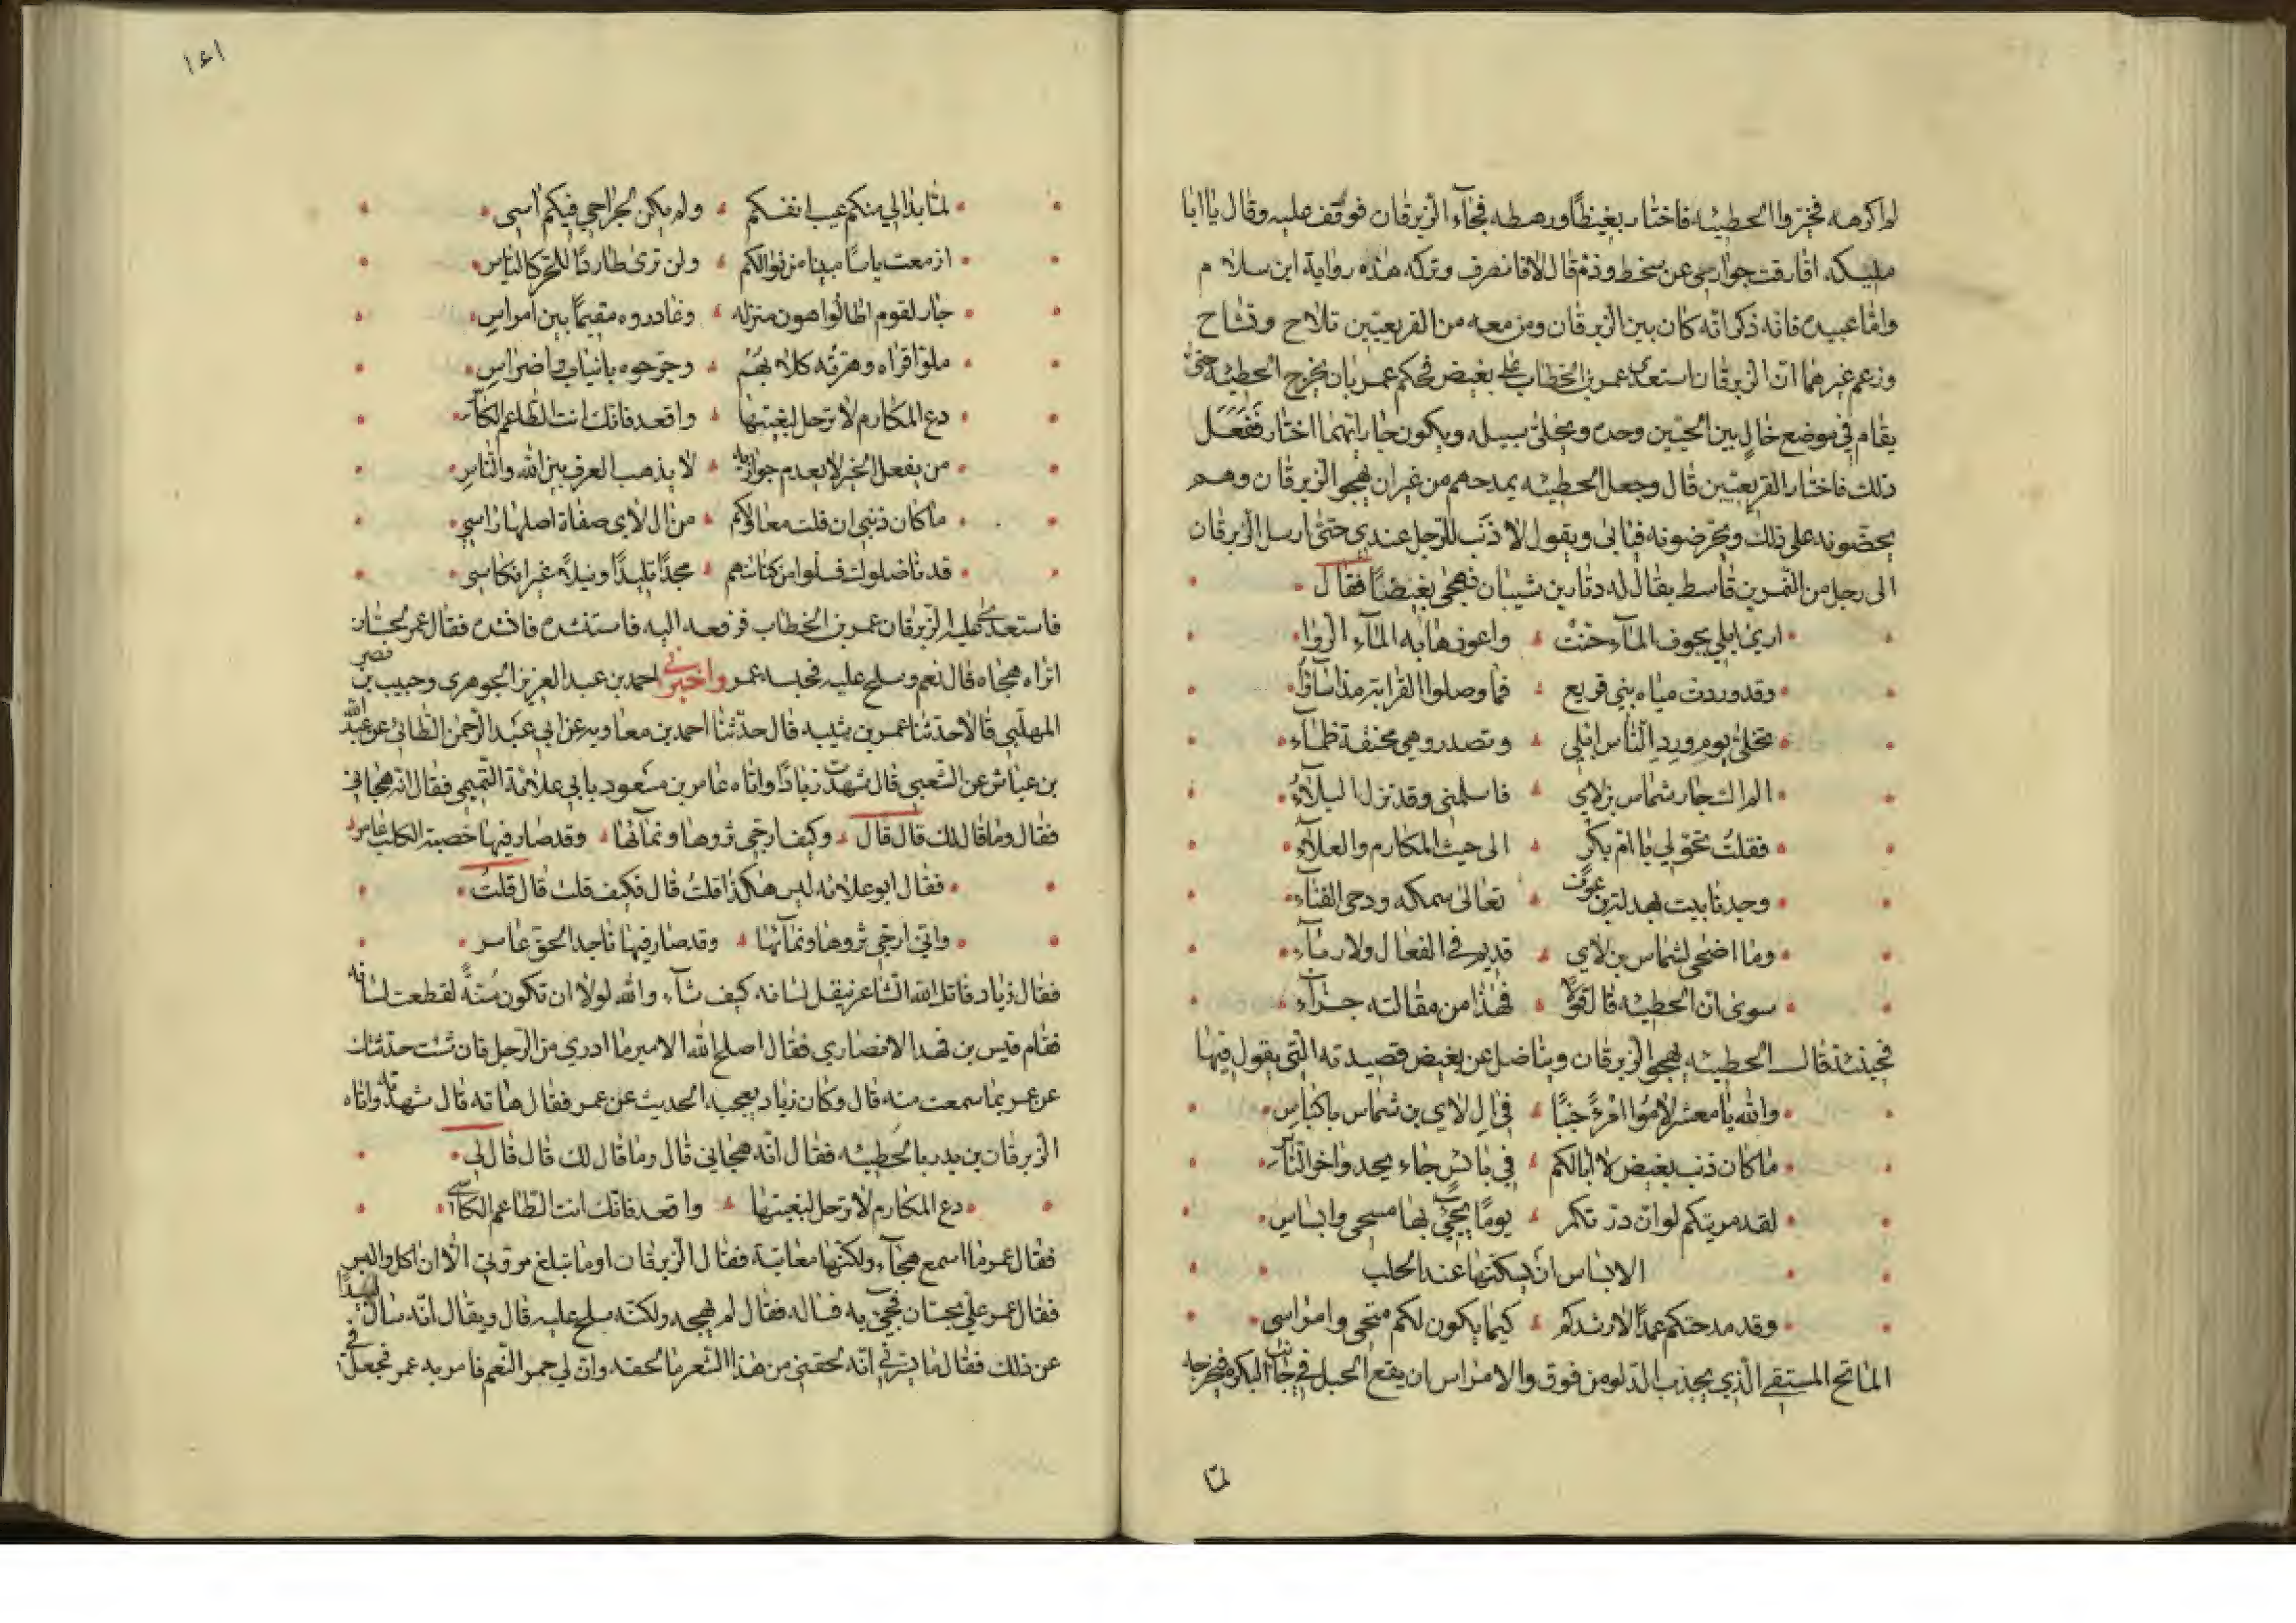 لم اكرهه فخيروا الحطيئه فاختار بغيظًا ورهطه فجآء الزبرقان فوقف عليه وقال يا ابا
مليكه افارقت جواري عن سخط وذم قال لا فانصرف وتركه هذه رواية ابن سلام
وامّا عبيده فانه ذكر انّه كان بين الزبرقان ومن معه من القريعيّين تلاح وتشاح
وزعم غيرهما انّ الزبرقان استعدى عمر بن الخطاب على بغيض فحكم عمر بان يخرج الحطيئه حتى
يقام في موضع خالٍ بين الحيّين وحده ويخلى سبيله ويكون جار ايّهما اختار ففعل
ذلك فاختار القريعيّين قال وجعل الحطيئه يمدحهم من غير ان يهجو الزبرقان وهم
يحضّونه على ذلك ويحرّضونه فيابى ويقول لا ذنب للرّجل عندي حتى ارسل الزبرقان
الى رجل من النّمر بن قاسط يقال له دثار بن شيبان فهجى بغيضًا فقال
ارى ابلي بجوف المآء حنّت واعوزها به المآء الروا
وقد وردت مياه بني قريع فما وصلوا القرابة مذ اساؤا
تحلى يوم ورد النّاس ابلي وتصدر وهي محنقة ظمآء
الم اك جار شماس بن لاي فاسلمني وقد نزل البلآءُ
فقلتُ تحوّلي يا امّ بكرٍ الى حيث المكارم والعلآءِ
وجدنا بيت بهدلة بن عوف تعالى سمكه ودحى الفنآء
وما اضحى لشماس بن لاي قديم في الفعال ولا رمآء
سوى انّ الحطيئه قال قولًا فهذا من مقالته جزآء
فحينئذ قال الحطيئه يهجو الزبرقان ويناضل عن بغيض قصيدته التي يقول فيها
والله يا معشر لاموا امرءً جنبًا في ال لاي بن شماس باكياس
ما كان ذنب بغيض لا ابا لكم في بائس جاء يحدو اخر النّاس
لقد مريتكم لو انّ درتكم يومًا يجيئ بها مسحي وابساس
الابساس ان يسكنها عند الحلب
وقد مدحتكم عمدًا لارشدكم كيما يكون لكم متحي وامراسي
الماتح المستقي الّذي يجذب الدّلو من فوق والامراس ان يقع الحبل في جانب البكرة فيخرجه
لمّا
١٤١
لمّا بدا لي منكم عيب انفسكم ولم يكن لجراحي فيكم اسى
ازمعت ياسًا مبينا من نوالكم ولن ترى طاردًا للحرّ كالنّاس
جار لقوم اطالوا هون منزله وغادروه مقيمًا بين امراسِ
ملوّا قراه وهرّته كلابهم وجرّحوه بانياب واضراسِ
دع المكارم لا ترحل لبغيتها واقعد فانك انت الطاعم الكآسي
من يفعل الخير لا يعدم جوازيه لا يذهب العرف بين الله والنّاسِ
ما كان ذنبي ان فلت معاولكم من ال لاي صفاة اصلها راسي
قد ناضلوك فسلوا من كنانتهم مجدًا تليدًا ونبلًا غير انكاسي
فاستعدى عليه الزّبرقان عمر بن الخطاب فرفعه اليه فاستنشده فانشده فقال عمر لحسّان
اتراه هجاه قال نعم وسلح عليه فحبسه عمر واخبرني احمد بن عبد العزيز الجوهري وحبيب بن نصر
المهلّبي قالا حدثنا عمر بن شيبه قال حدّثنا احمد بن معاويه عن ابي عبد الرّحمن الطائي عن عبد الله
بن عياش عن الشّعبي قال شهدت زيادًا واتاه عامر بن مسعود بابي علاثة التّيمي فقال انّه هجاني
فقال وما قال لك قال قال وكيف ارجّي ثروها ونمآئها وقد صار فيها خصية الكلب عامر
فقال ابو علاثه ليس هكذا قلتُ قال فكيف قلت قال قلتُ
واني ارجي ثروها ونمآئها وقد صار فيها ناجدا الحق عامر
فقال زياد قاتل الله الشاعر ينقل لسانه كيف شآء والله لولا ان تكون سنةً لقطعت لسانه
فقام قيس بن فهد الانصاري فقال اصلح الله الامير ما ادري من الرّجل فان شئت حدثتك
عن عمر بما سمعت منه قال وكان زياد يعجبه الحديث عن عمر فقال هاته قال شهدته واتاه
الزّبرقان بن بدر بالحطيئه فقال انّه هجاني قال وما قال لك قال قال لي
دع المكارم لا ترحل لبغيتها واقعد فانك انت الطاعم الكآسي
فقال عمر ما اسمع هجآء ولكنّها معاتبة فقال الزّبرقان اوما تبلغ مروتي الّا ان اكل والبس
فقال عمر عليّ بحسّان فجيئ به فساله فقال لم يهجه ولكنّه سلح عليه قال ويقال انّه سال لبيدًا
عن ذلك فقال ما يسّرني انّه لحقني من هذا الشعر ما لحقه وانّ لي حمر النّعم فامر به عمر فجعل في